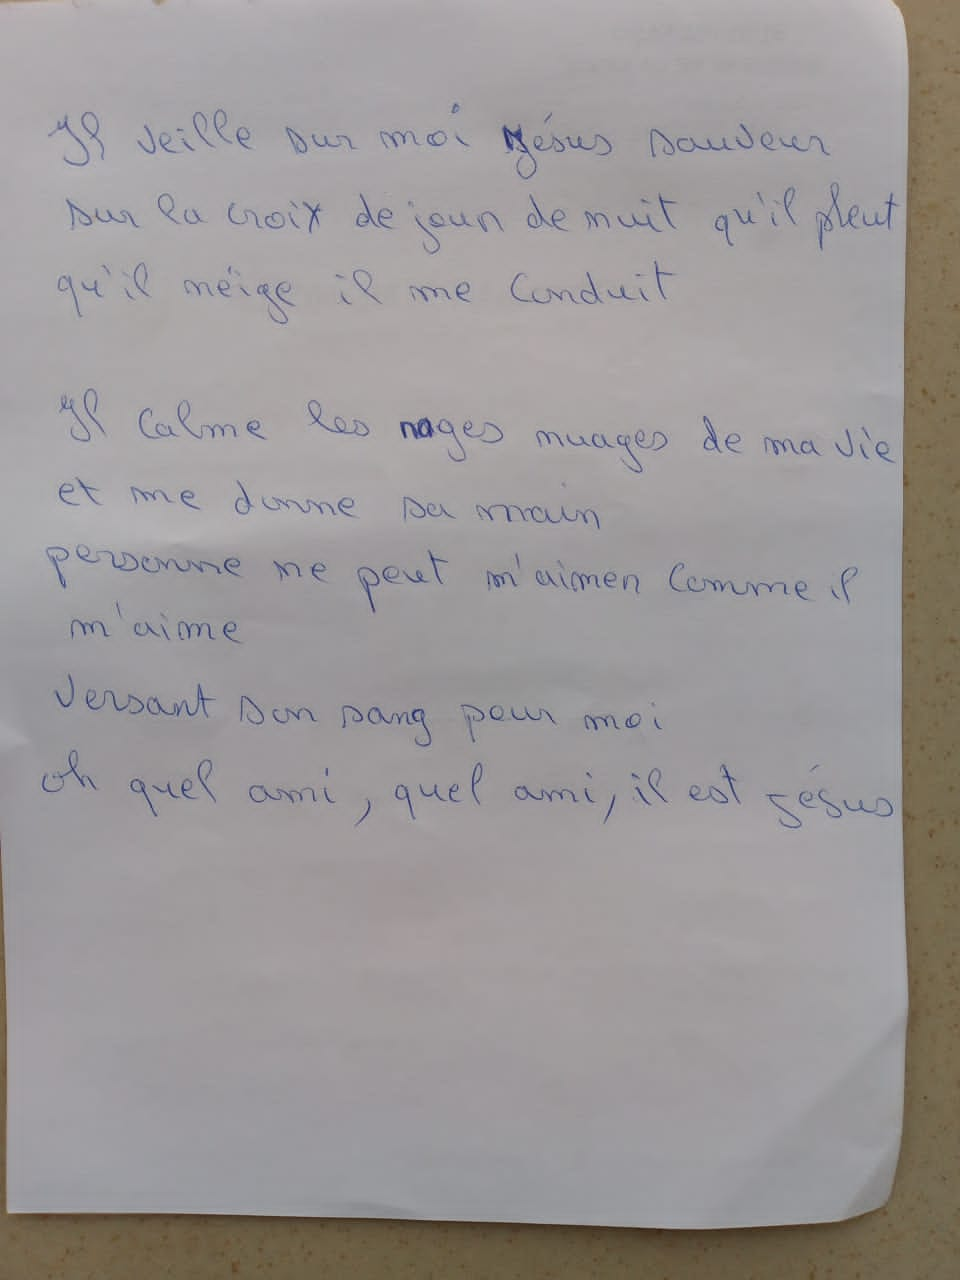 Il veille sur moi Jésus sauveur
sur la croix de jour de nuit qu'il pleut
qu'il néige il me conduit
Il calme les nages nuages de ma vie
et me donne sa main
personne ne peut m'aimer comme il
m'aime
versant son sang pour moi
oh quel ami, quel ami, il est jésus